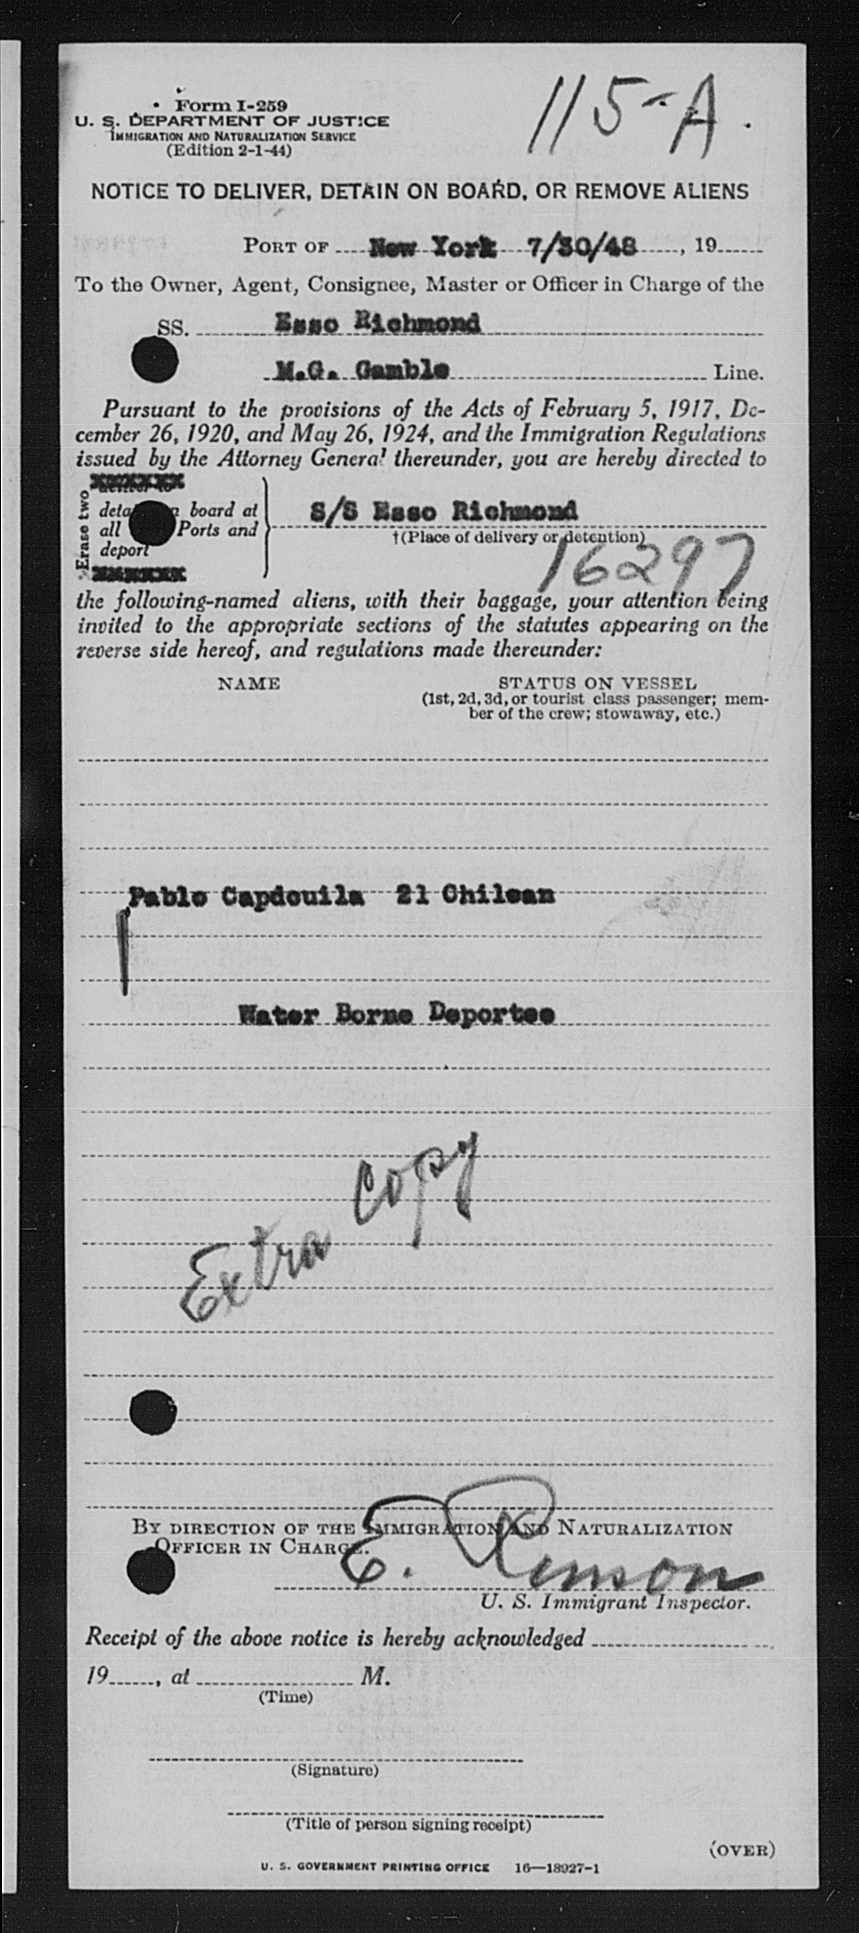 115-A.
Form I-259
U. S. DEPARTMENT OF JUSTICE
IMMIGRATION AND NATURALIZATION SERVICE
(Edition 2-1-44)
NOTICE TO DELIVER, DETAIN ON BOARD, OR REMOVE ALIENS
PORT OF New York 7/30/48, 19
To the Owner, Agent, Consignee, Master or Officer in Charge of the
SS. Esso Richmond
M.G. Gamble Line.
Pursuant to the provisions of the Acts of February 5, 1917, De-
cember 26, 1920, and May 26, 1924, and the Immigration Regulations
issued by the Attorney General thereunder, you are hereby directed to
Erase two
deta board at
all Ports and
deport
S/S Esso Richmond
†(Place of delivery or detention)
16297
the following-named aliens, with their baggage, your attention being
invited to the appropriate sections of the statutes appearing on the
reverse side hereof, and regulations made thereunder:
NAME STATUS ON VESSEL
(1st, 2d, 3d, or tourist class passenger; mem-
ber of the crew; stowaway, etc.)
Pablo Capdouila 21 Chilean
Water Borne Deportee
Extra Copy
BY DIRECTION OF THE IMMIGRATION AND NATURALIZATION
OFFICER IN CHARGE.
E.
U. S. Immigrant Inspector.
Receipt of the above notice is hereby acknowledged
19, at M.
(Time)
(Signature)
(Title of person signing receipt)
(OVER)
U. S. GOVERNMENT PRINTING OFFICE 16—18927-1